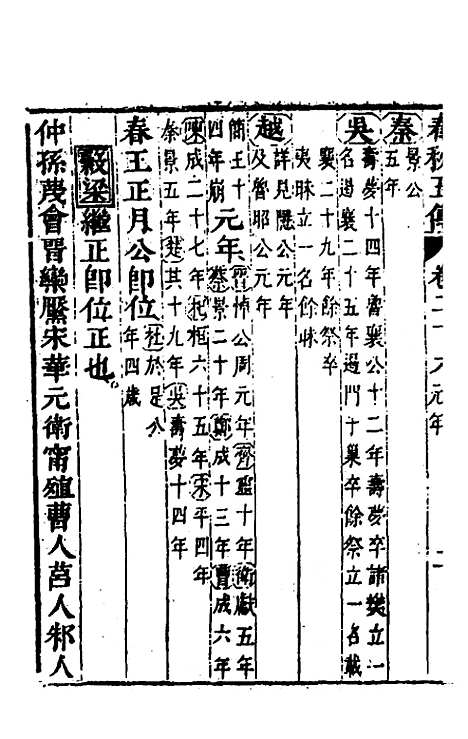 春秋五傳 卷二十六 元年 一
秦 景公
五年
吳 壽夢十四年魯襄公十二年壽夢卒諸樊立一
名遏襄二十五年過門于巢卒餘祭立一名戴
襄二十九年餘祭卒
夷眛立一名餘眛
越 詳見隱公元年
及魯昭公元年
簡王十
四年崩
元年
晉悼公周元年齊靈十年衛獻五年
蔡景二十年鄭成十三年曹成六年
陳成二十七年杞桓六十五年宋平四年
秦景五年楚共十九年吳壽夢十四年
春王正月公卽位
杜於是公
年四歲
穀梁繼正卽位正也
仲孫蔑會晉欒黶宋華元衛甯殖曹人莒人邾人